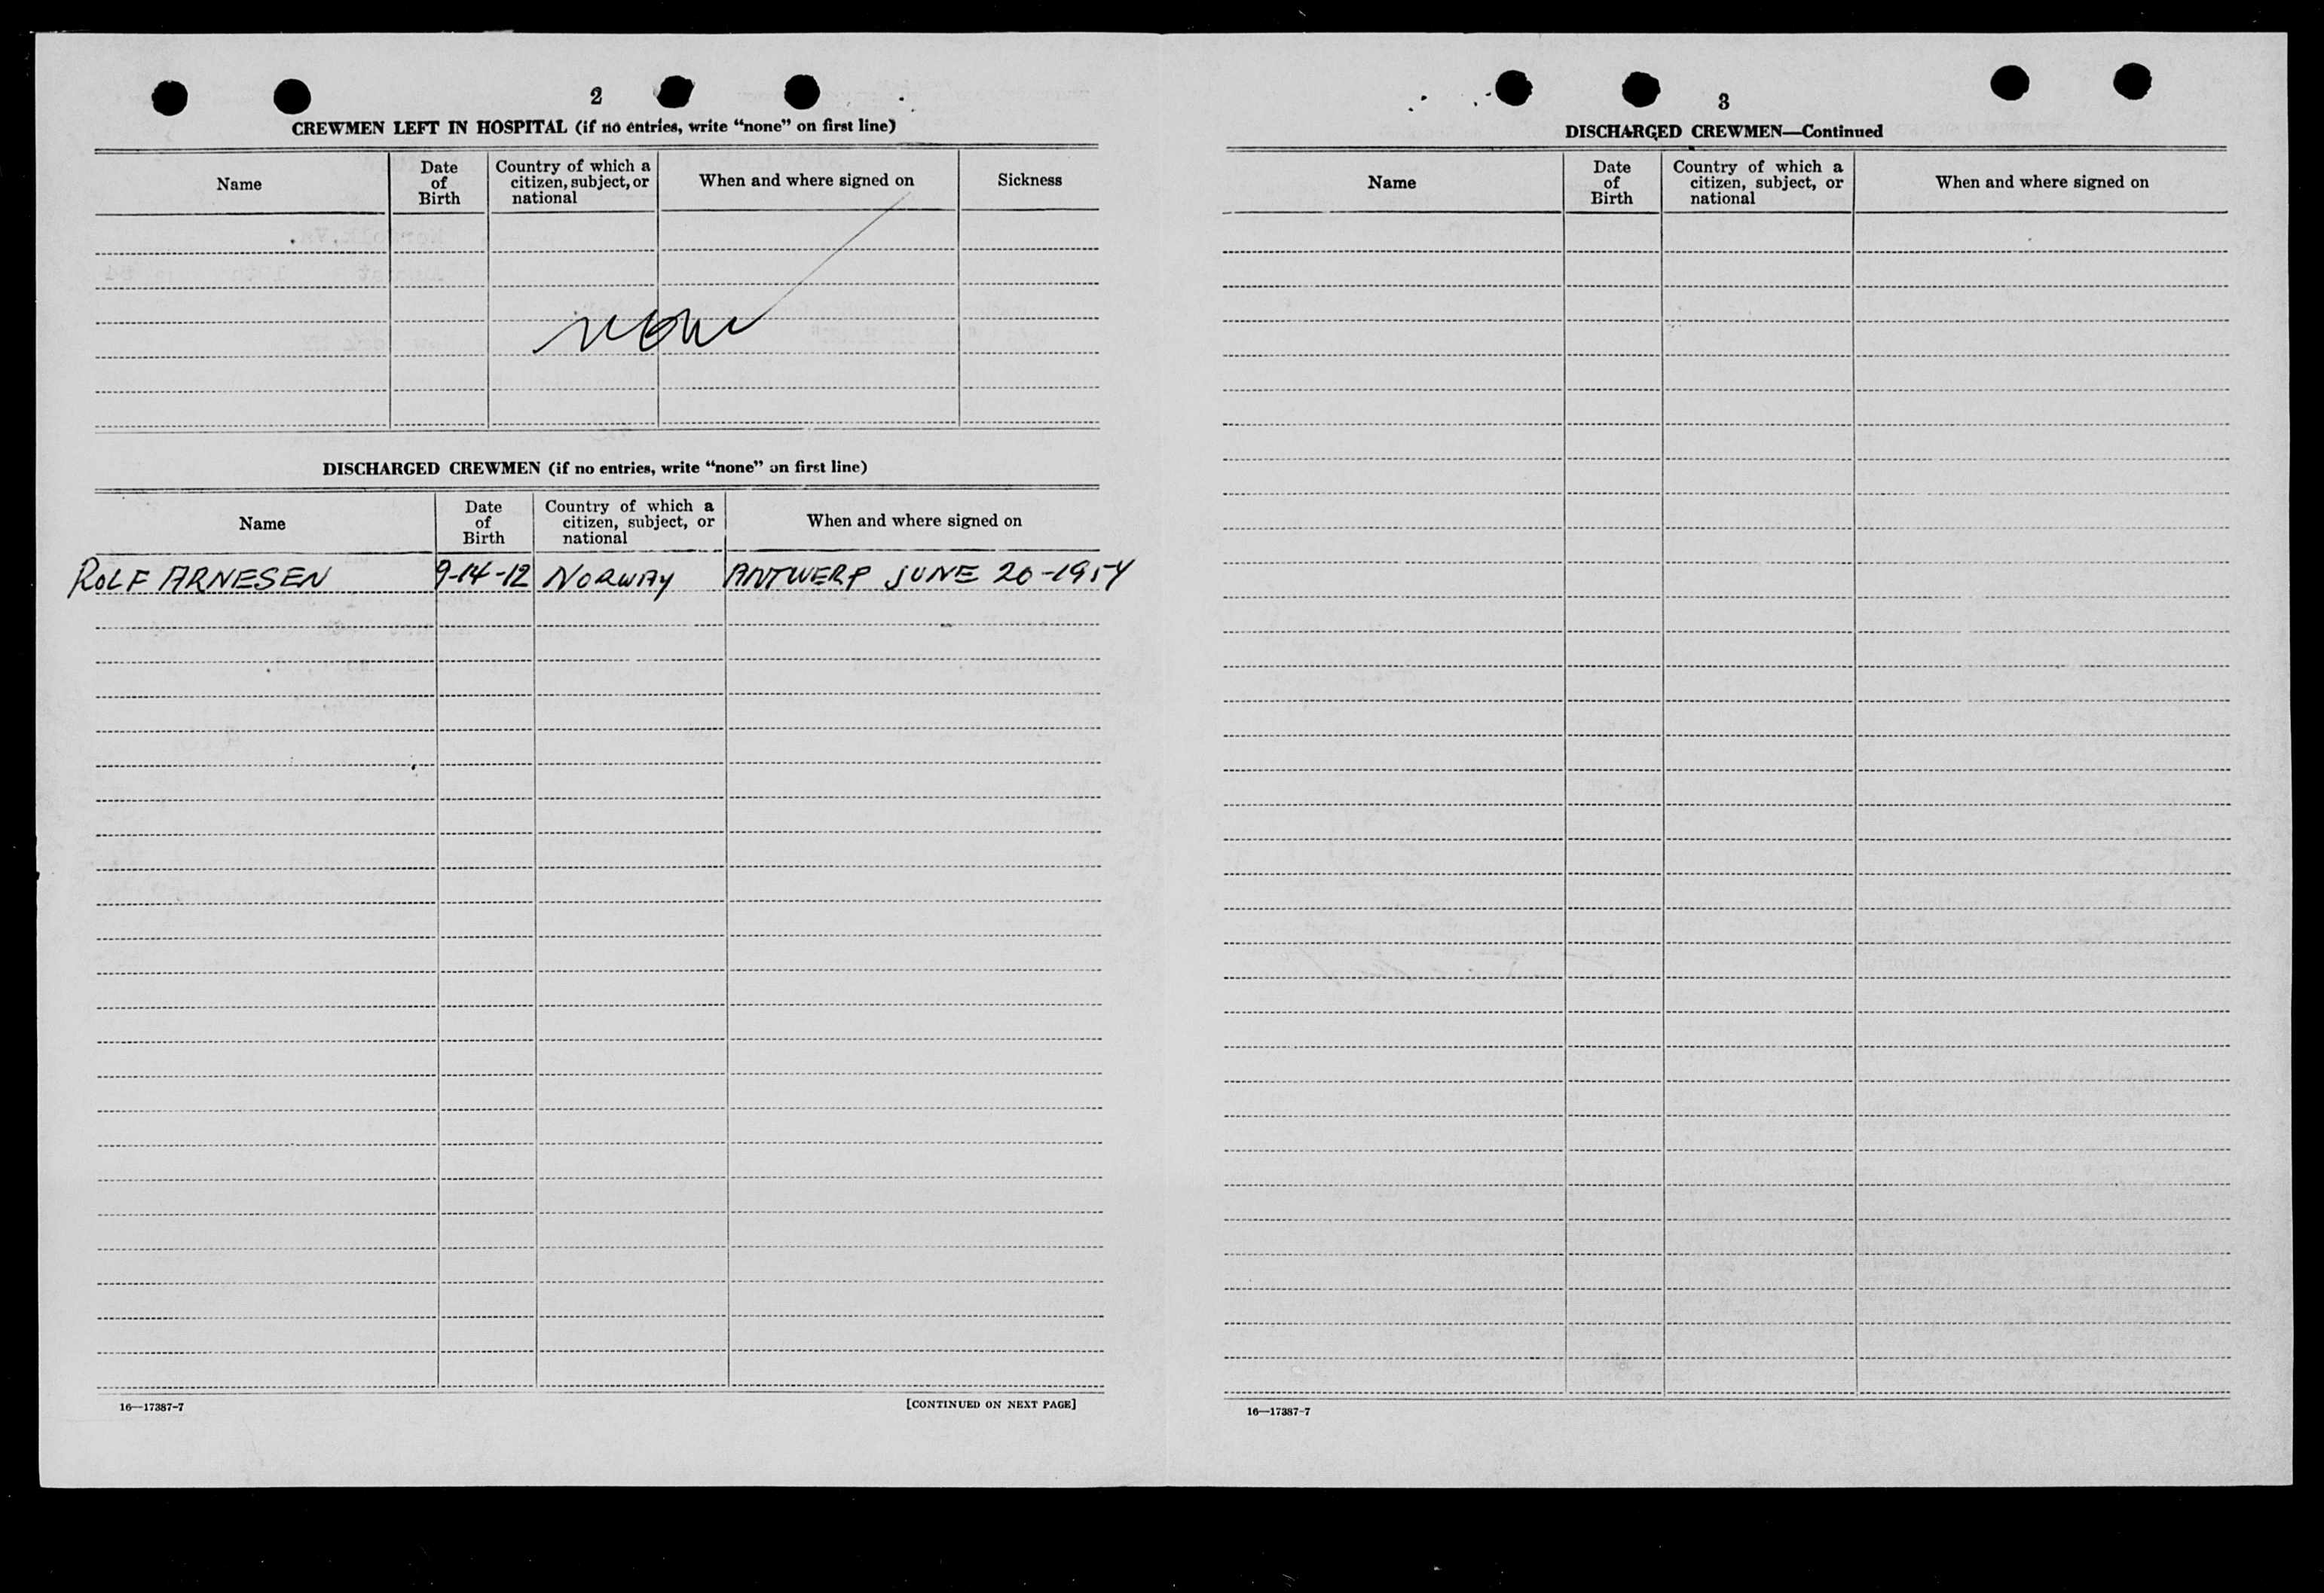 2
CREWMEN LEFT IN HOSPITAL (if no entries, write "none" on first line)
Name
Date of Birth
Country of which a citizen, subject, or national
When and where signed on
Sickness
none
DISCHARGED CREWMEN (if no entries, write "none" on first line)
Name
Date of Birth
Country of which a citizen, subject, or national
When and where signed on
ROLF ARNESEN 9-14-12 NORWAY ANTWERP JUNE 20-1954
16—17387-7
[CONTINUED ON NEXT PAGE]
3
DISCHARGED CREWMEN—Continued
Name
Date of Birth
Country of which a citizen, subject, or national
When and where signed on
16—17387-7